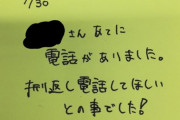 7/30
さんあてに
電話がありました。
折返し電話してほしい
との事でした!